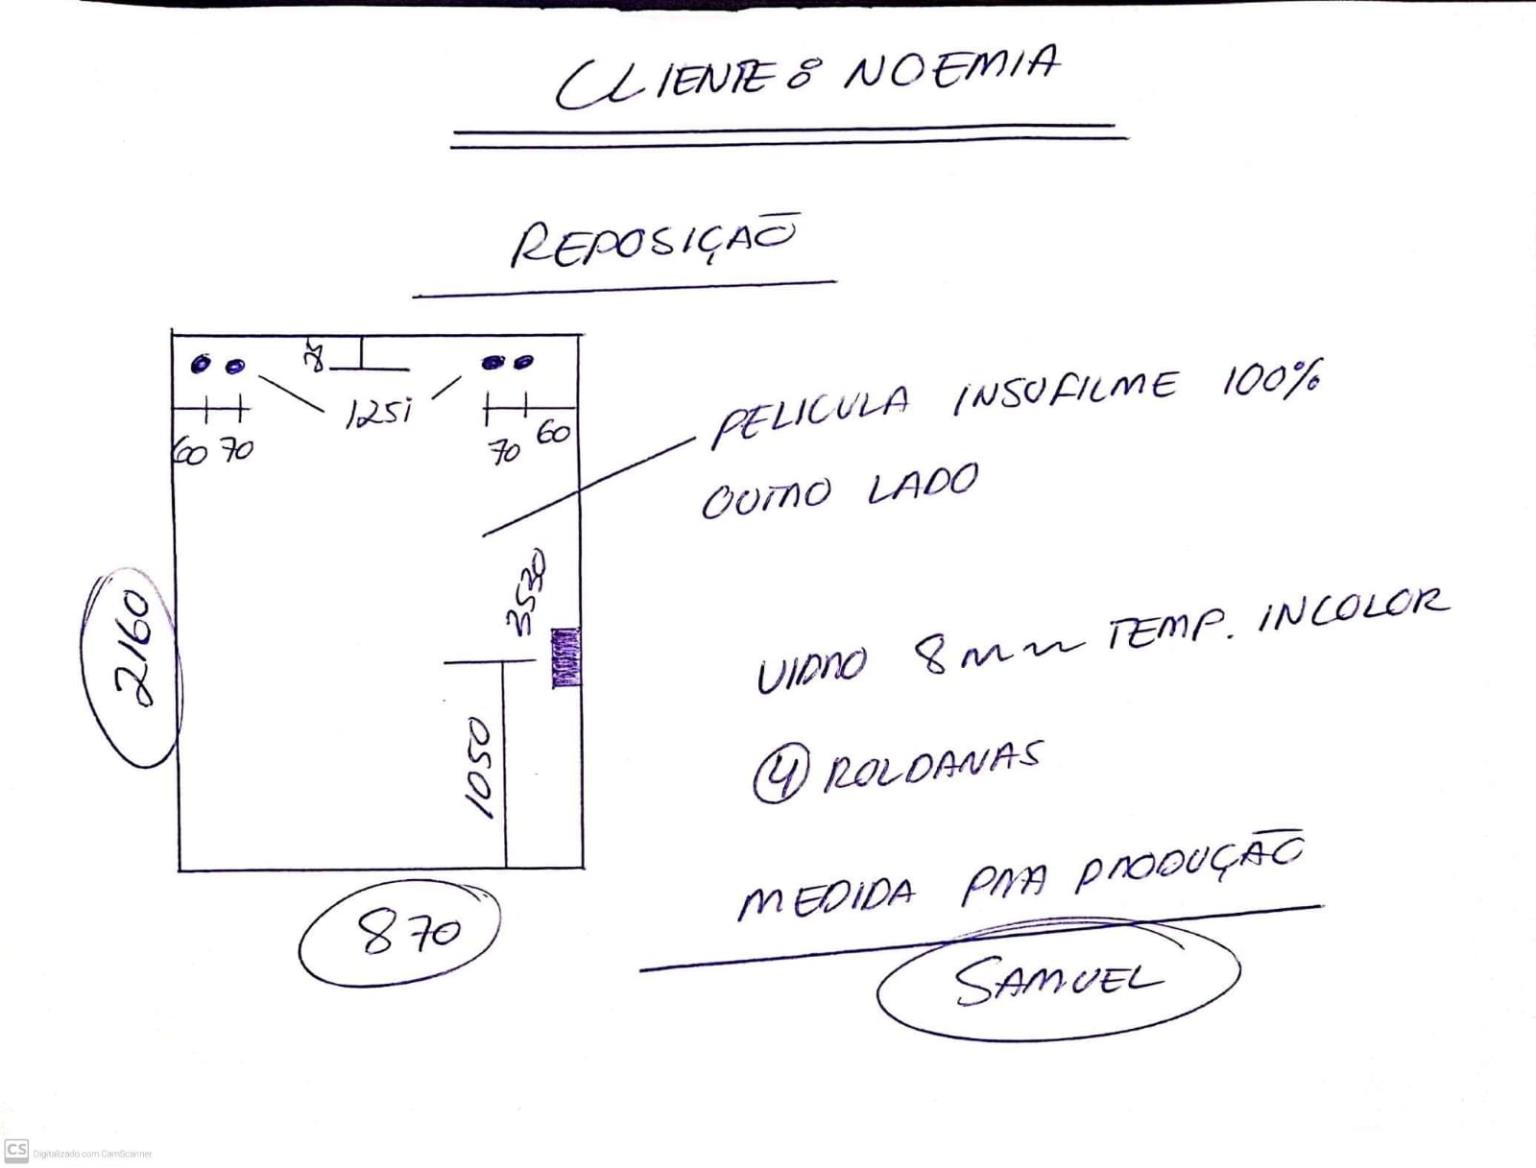 CLIENTE: NOEMIA
REPOSIÇÃO
125i
60 70
70 60
PELICULA INSUFILME 100%
OUTRO LADO
3530
2160
VIDRO 8mm TEMP. INCOLOR
1050
④ ROLDANAS
MEDIDA PRA PRODUÇÃO
870
SAMUEL
CS Digitalizado com CamScanner